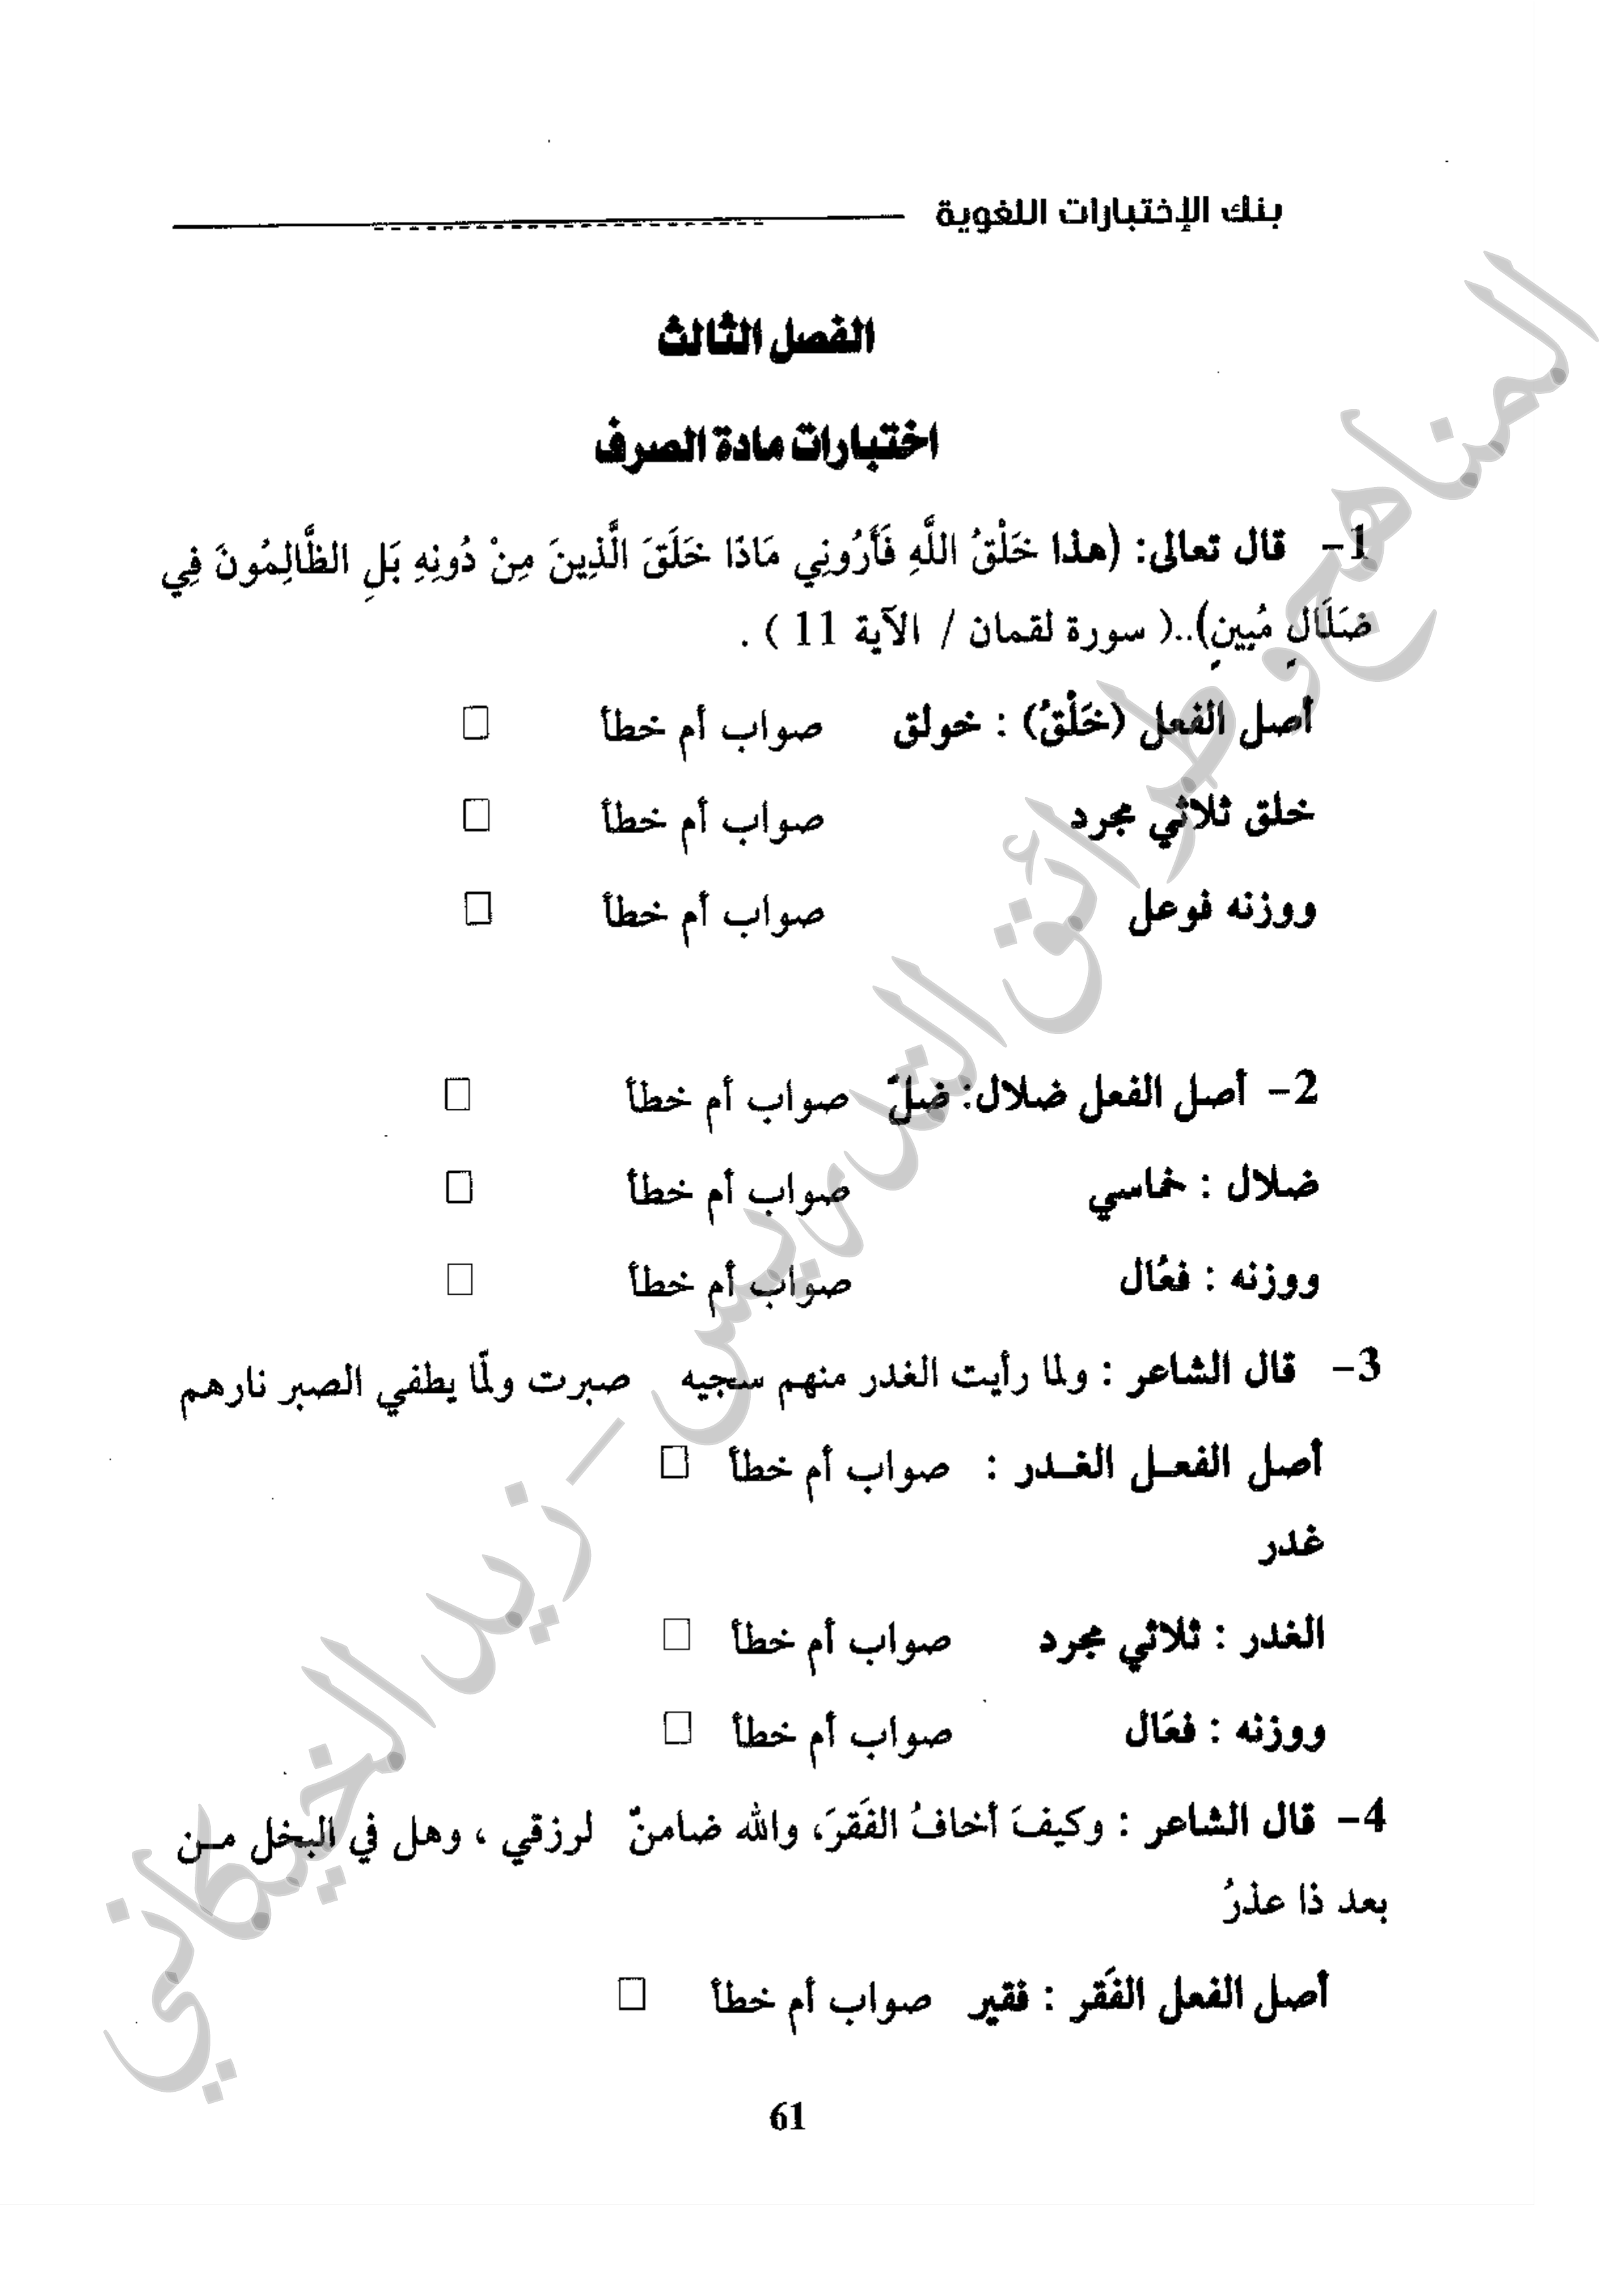 بنك الإختبارات اللغوية
الفصل الثالث
اختبارات مادة الصرف
1- قال تعالى: (هذا خَلْقُ اللَّهِ فَأَرُونِي مَاذَا خَلَقَ الَّذِينَ مِنْ دُونِهِ بَلِ الظَّالِمُونَ فِي
ضَلَالٍ مُبِينٍ)..( سورة لقمان / الآية 11 ) .
أصل الفعل (خَلْقُ) : خولق صواب أم خطأ □
خلق ثلاثي مجرد صواب أم خطأ □
ووزنه فوعل صواب أم خطأ □
2- أصل الفعل ضلال: ضلّ صواب أم خطأ □
ضلال : خماسي صواب أم خطأ □
ووزنه : فعّال صواب أم خطأ □
3- قال الشاعر : ولما رأيت الغدر منهم سجيه صبرت ولمّا يطفي الصبر نارهم
أصل الفعـل الغـدر : صواب أم خطأ □
غدر
الغدر : ثلاثي مجرد صواب أم خطأ □
ووزنه : فعّال صواب أم خطأ □
4- قال الشاعر : وكيفَ أخافُ الفَقرَ، والله ضامنٌ لرزقي ، وهل في البخل مـن
بعد ذا عذرُ
أصل الفعل الفَقر : فقير صواب أم خطأ □
61
المناهج وطرائق التدريس - زيد الخيكاني